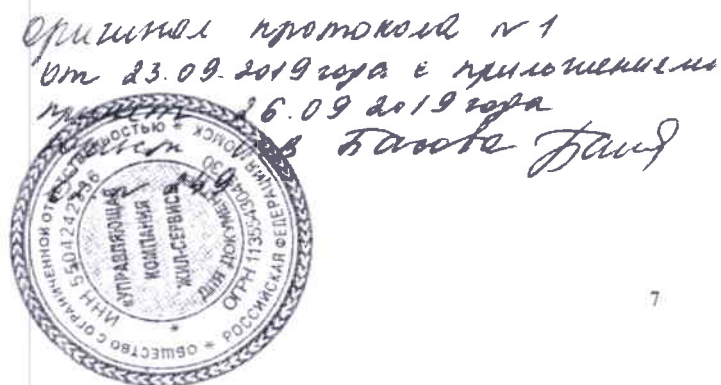 оригинал протокола № 1
от 23.09.2019 года с приложениями
принят 26.09 2019 года
Басова
ОБЩЕСТВО С ОГРАНИЧЕННОЙ ОТВЕТСТВЕННОСТЬЮ * РОССИЙСКАЯ ФЕДЕРАЦИЯ Г.ОМСК
ИНН 5504242
ДЛЯ ДОКУМЕНТОВ
ОГРН
«УПРАВЛЯЮЩАЯ
КОМПАНИЯ
ЖИЛ-СЕРВИС»
7